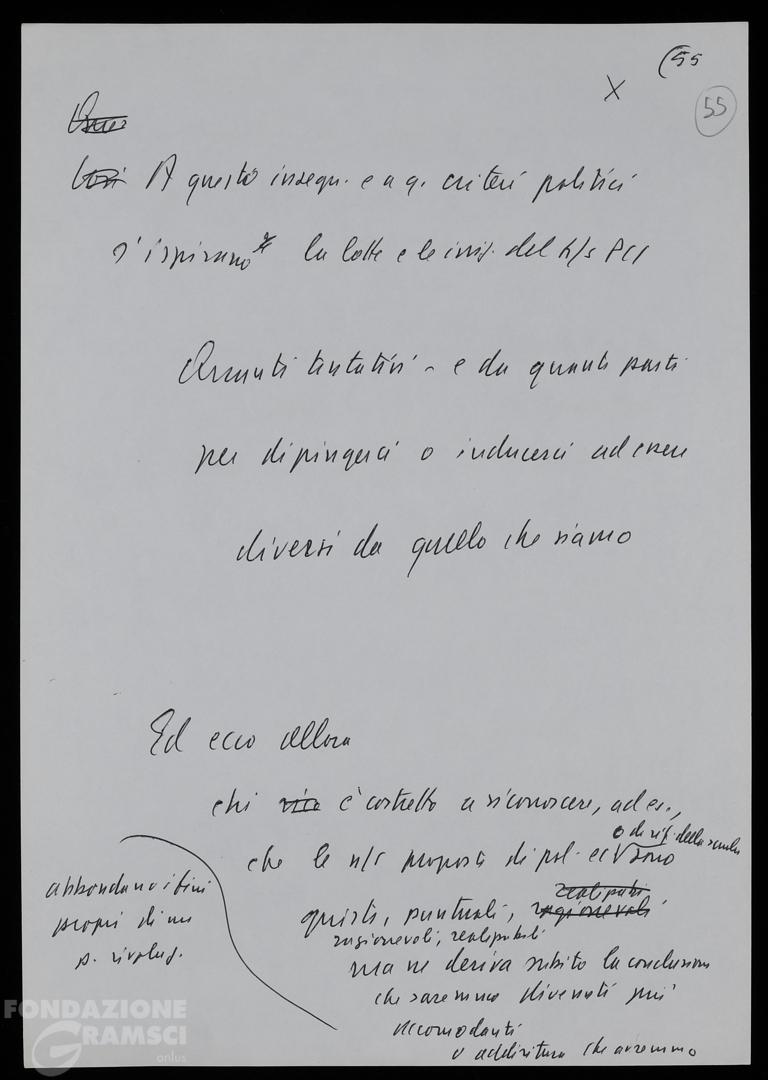 (55
X
55
Così A questi insegn. e a q. criteri politici
s'ispirano la lotta e le iniz. del n/s PCI
Quanti tentativi - e da quanti parti
per dipingerci o indurci ad essere
diversi da quello che siamo
Ed ecco allora
chi è costretto a riconoscere, ad es.,
o di rif. della scuola
che le n/s proposte di pol. ec. sono
realizzabili
giusti, puntuali, ragionevoli
ragionevoli, realizzabili
ma ne deriva subito la conclusione
che saremmo divenuti più
accomodanti
o addirittura che avremmo
abbandonato i fini
propri di un
p. rivoluz.
FONDAZIONE
GRAMSCI
onlus